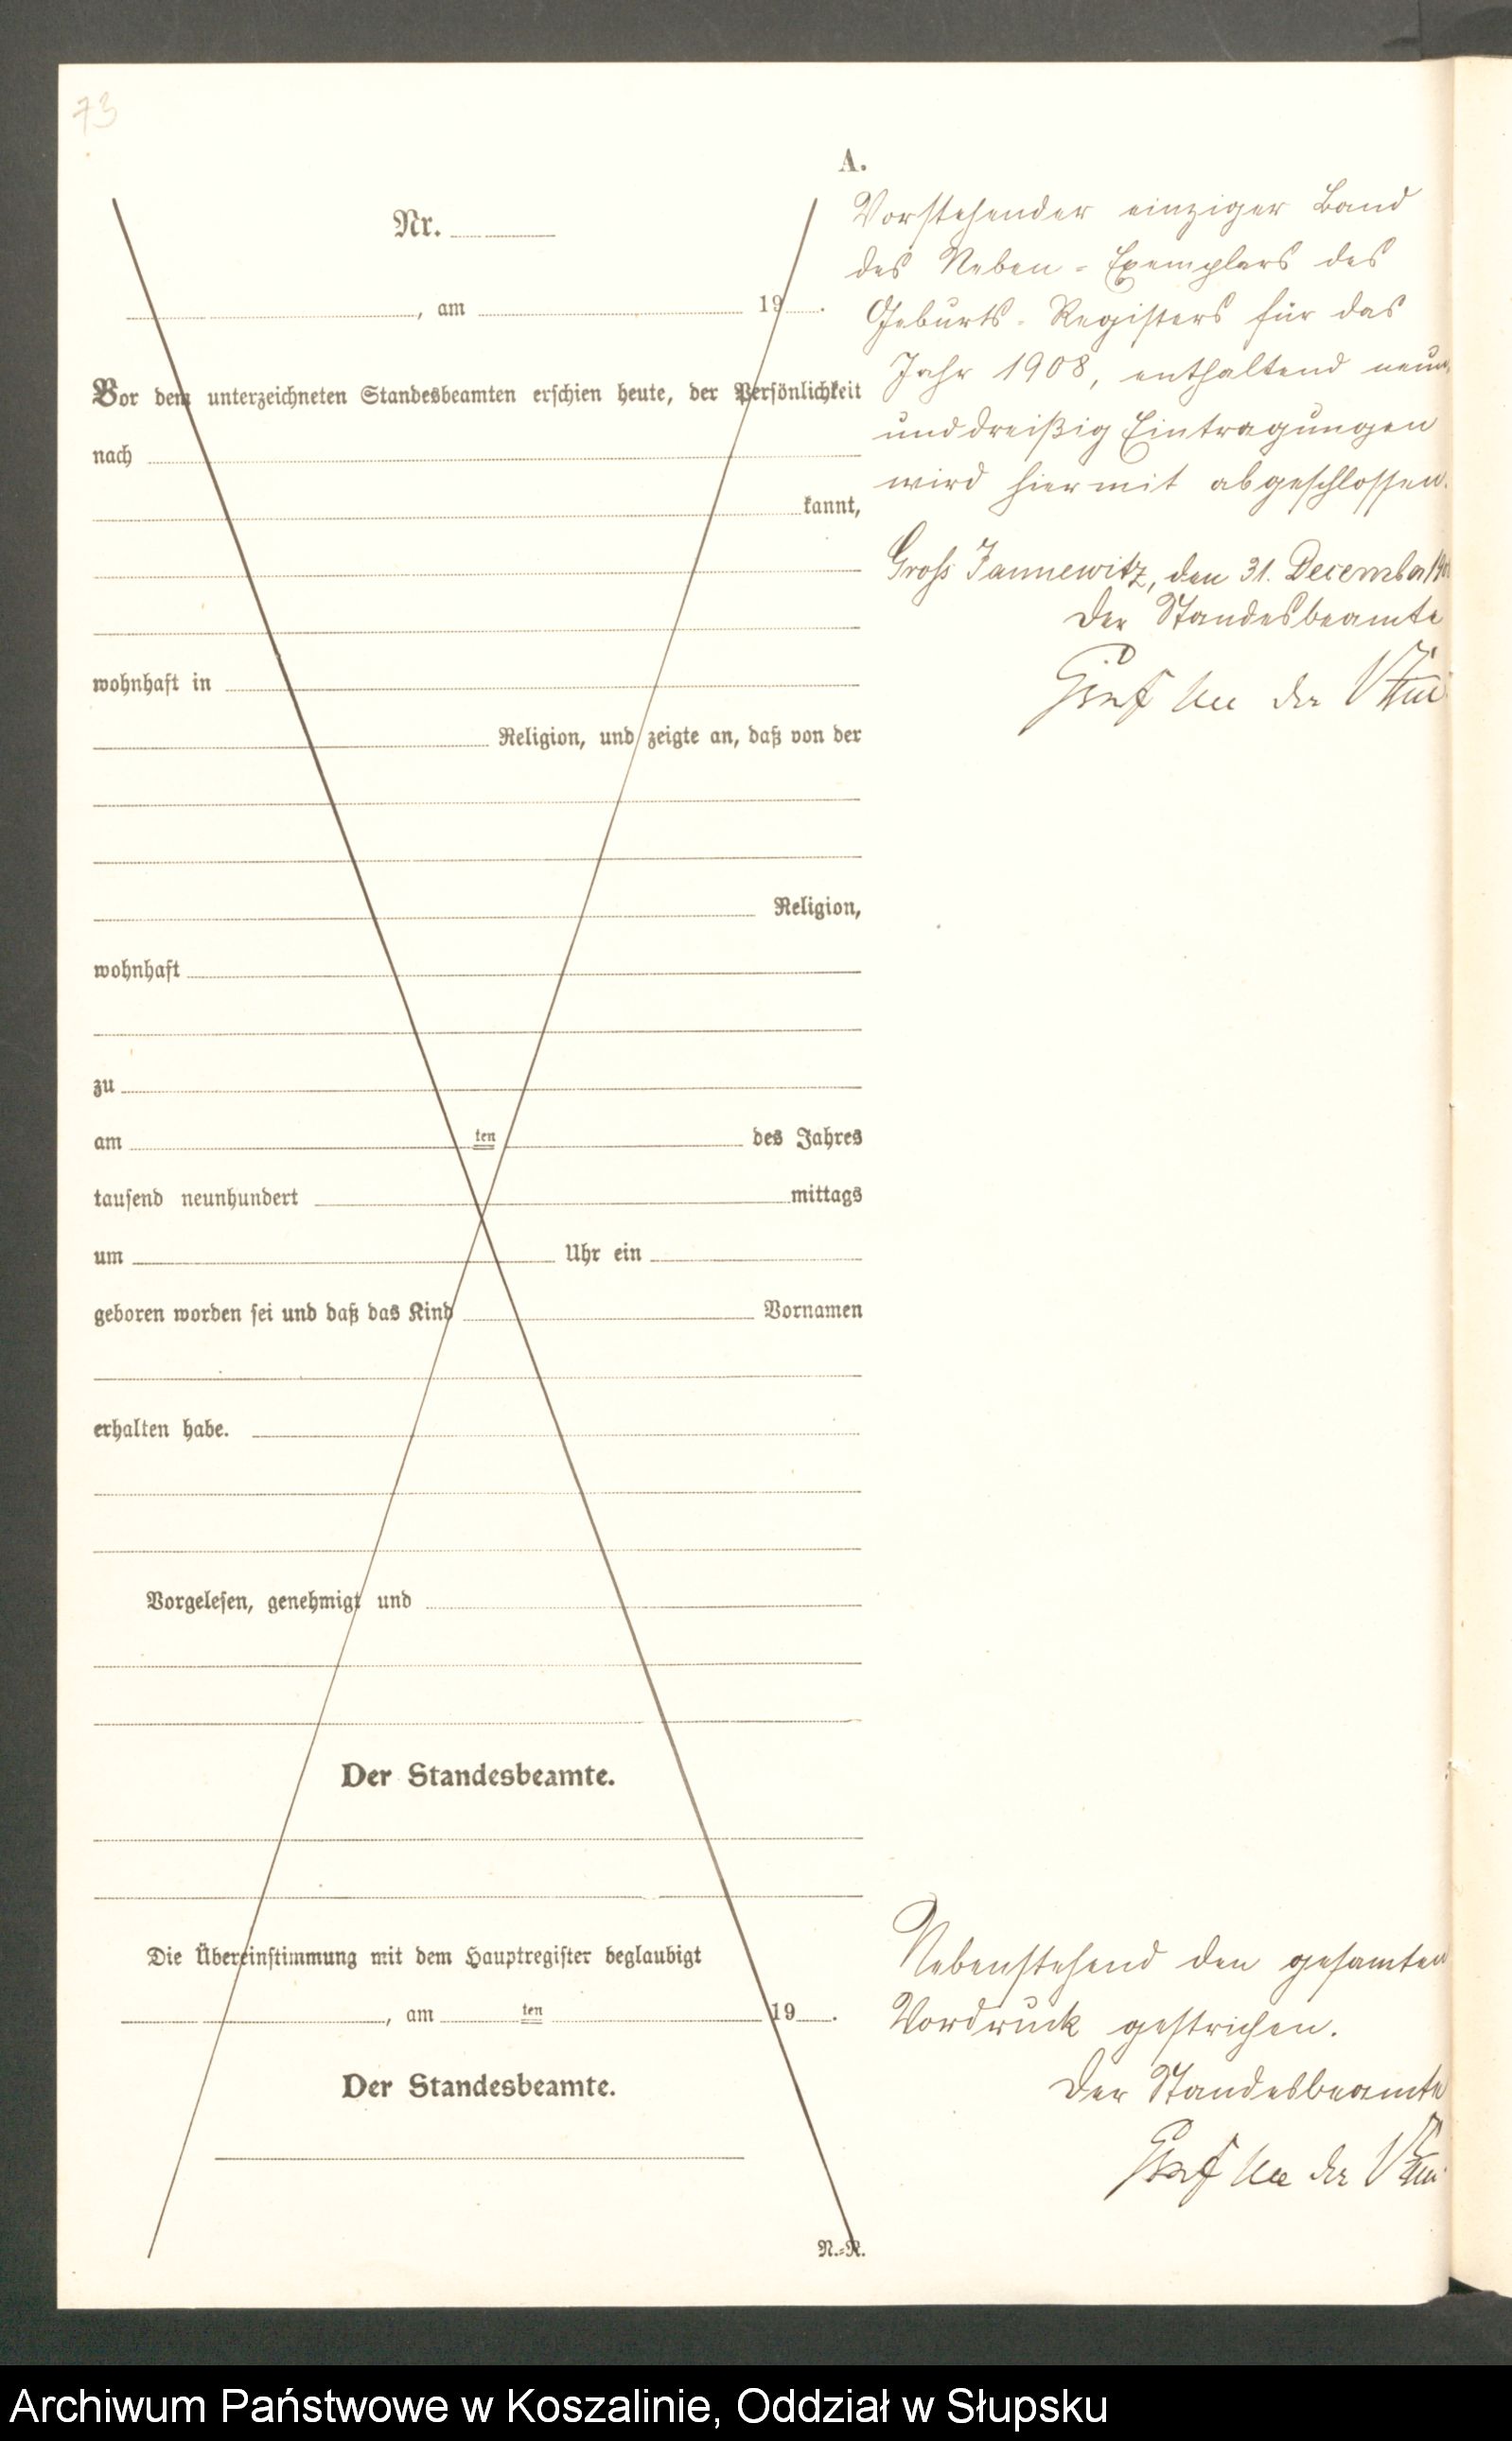 73
A.
Nr.
, am 19 .
Vor dem unterzeichneten Standesbeamten erschien heute, der Persönlichkeit
nach
kannt,
wohnhaft in
Religion, und zeigte an, daß von der
Religion,
wohnhaft
zu
am ten des Jahres
tausend neunhundert mittags
um Uhr ein
geboren worden sei und daß das Kind Vornamen
erhalten habe.
Vorgelesen, genehmigt und
Der Standesbeamte.
Die Übereinstimmung mit dem Hauptregister beglaubigt
, am ten 19 .
Der Standesbeamte.
N.=R.
Vorstehender einziger Band
des Neben-Exemplars des
Geburts-Registers für das
Jahr 1908, enthaltend neun,
und dreißig Eintragungen
wird hiermit abgeschlossen.
Gross Jannewitz, den 31. December
Der Standesbeamte
Graf von der
Nebenstehend den gesamten
Vordruck gestrichen.
Der Standesbeamte
Graf von der
Archiwum Państwowe w Koszalinie, Oddział w Słupsku